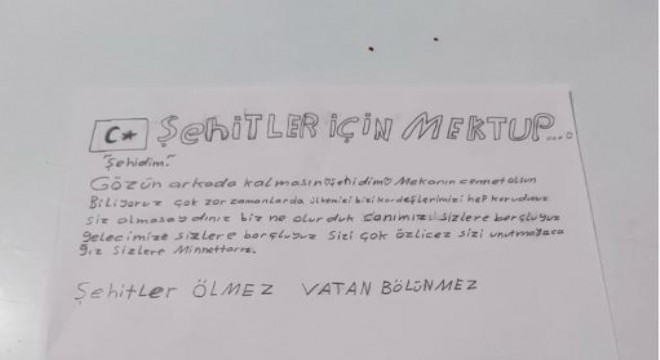 C★ ŞEHİTLER İÇİN MEKTUP....
"Şehidim."
Gözün arkada kalmasın şehidim Mekanın cennet olsun
Biliyoruz çok zor zamanlarda ülkemizi bizi kardeşlerimizi hep korudunuz
Siz olmasaydınız biz ne olurduk canımızı sizlere borçluyuz
gelecimize sizlere borçluyuz Sizi çok özlicez sizi unutmayaca
ğız Sizlere Minnettarız.
Şehitler ÖLMEZ VATAN BÖLÜNMEZ